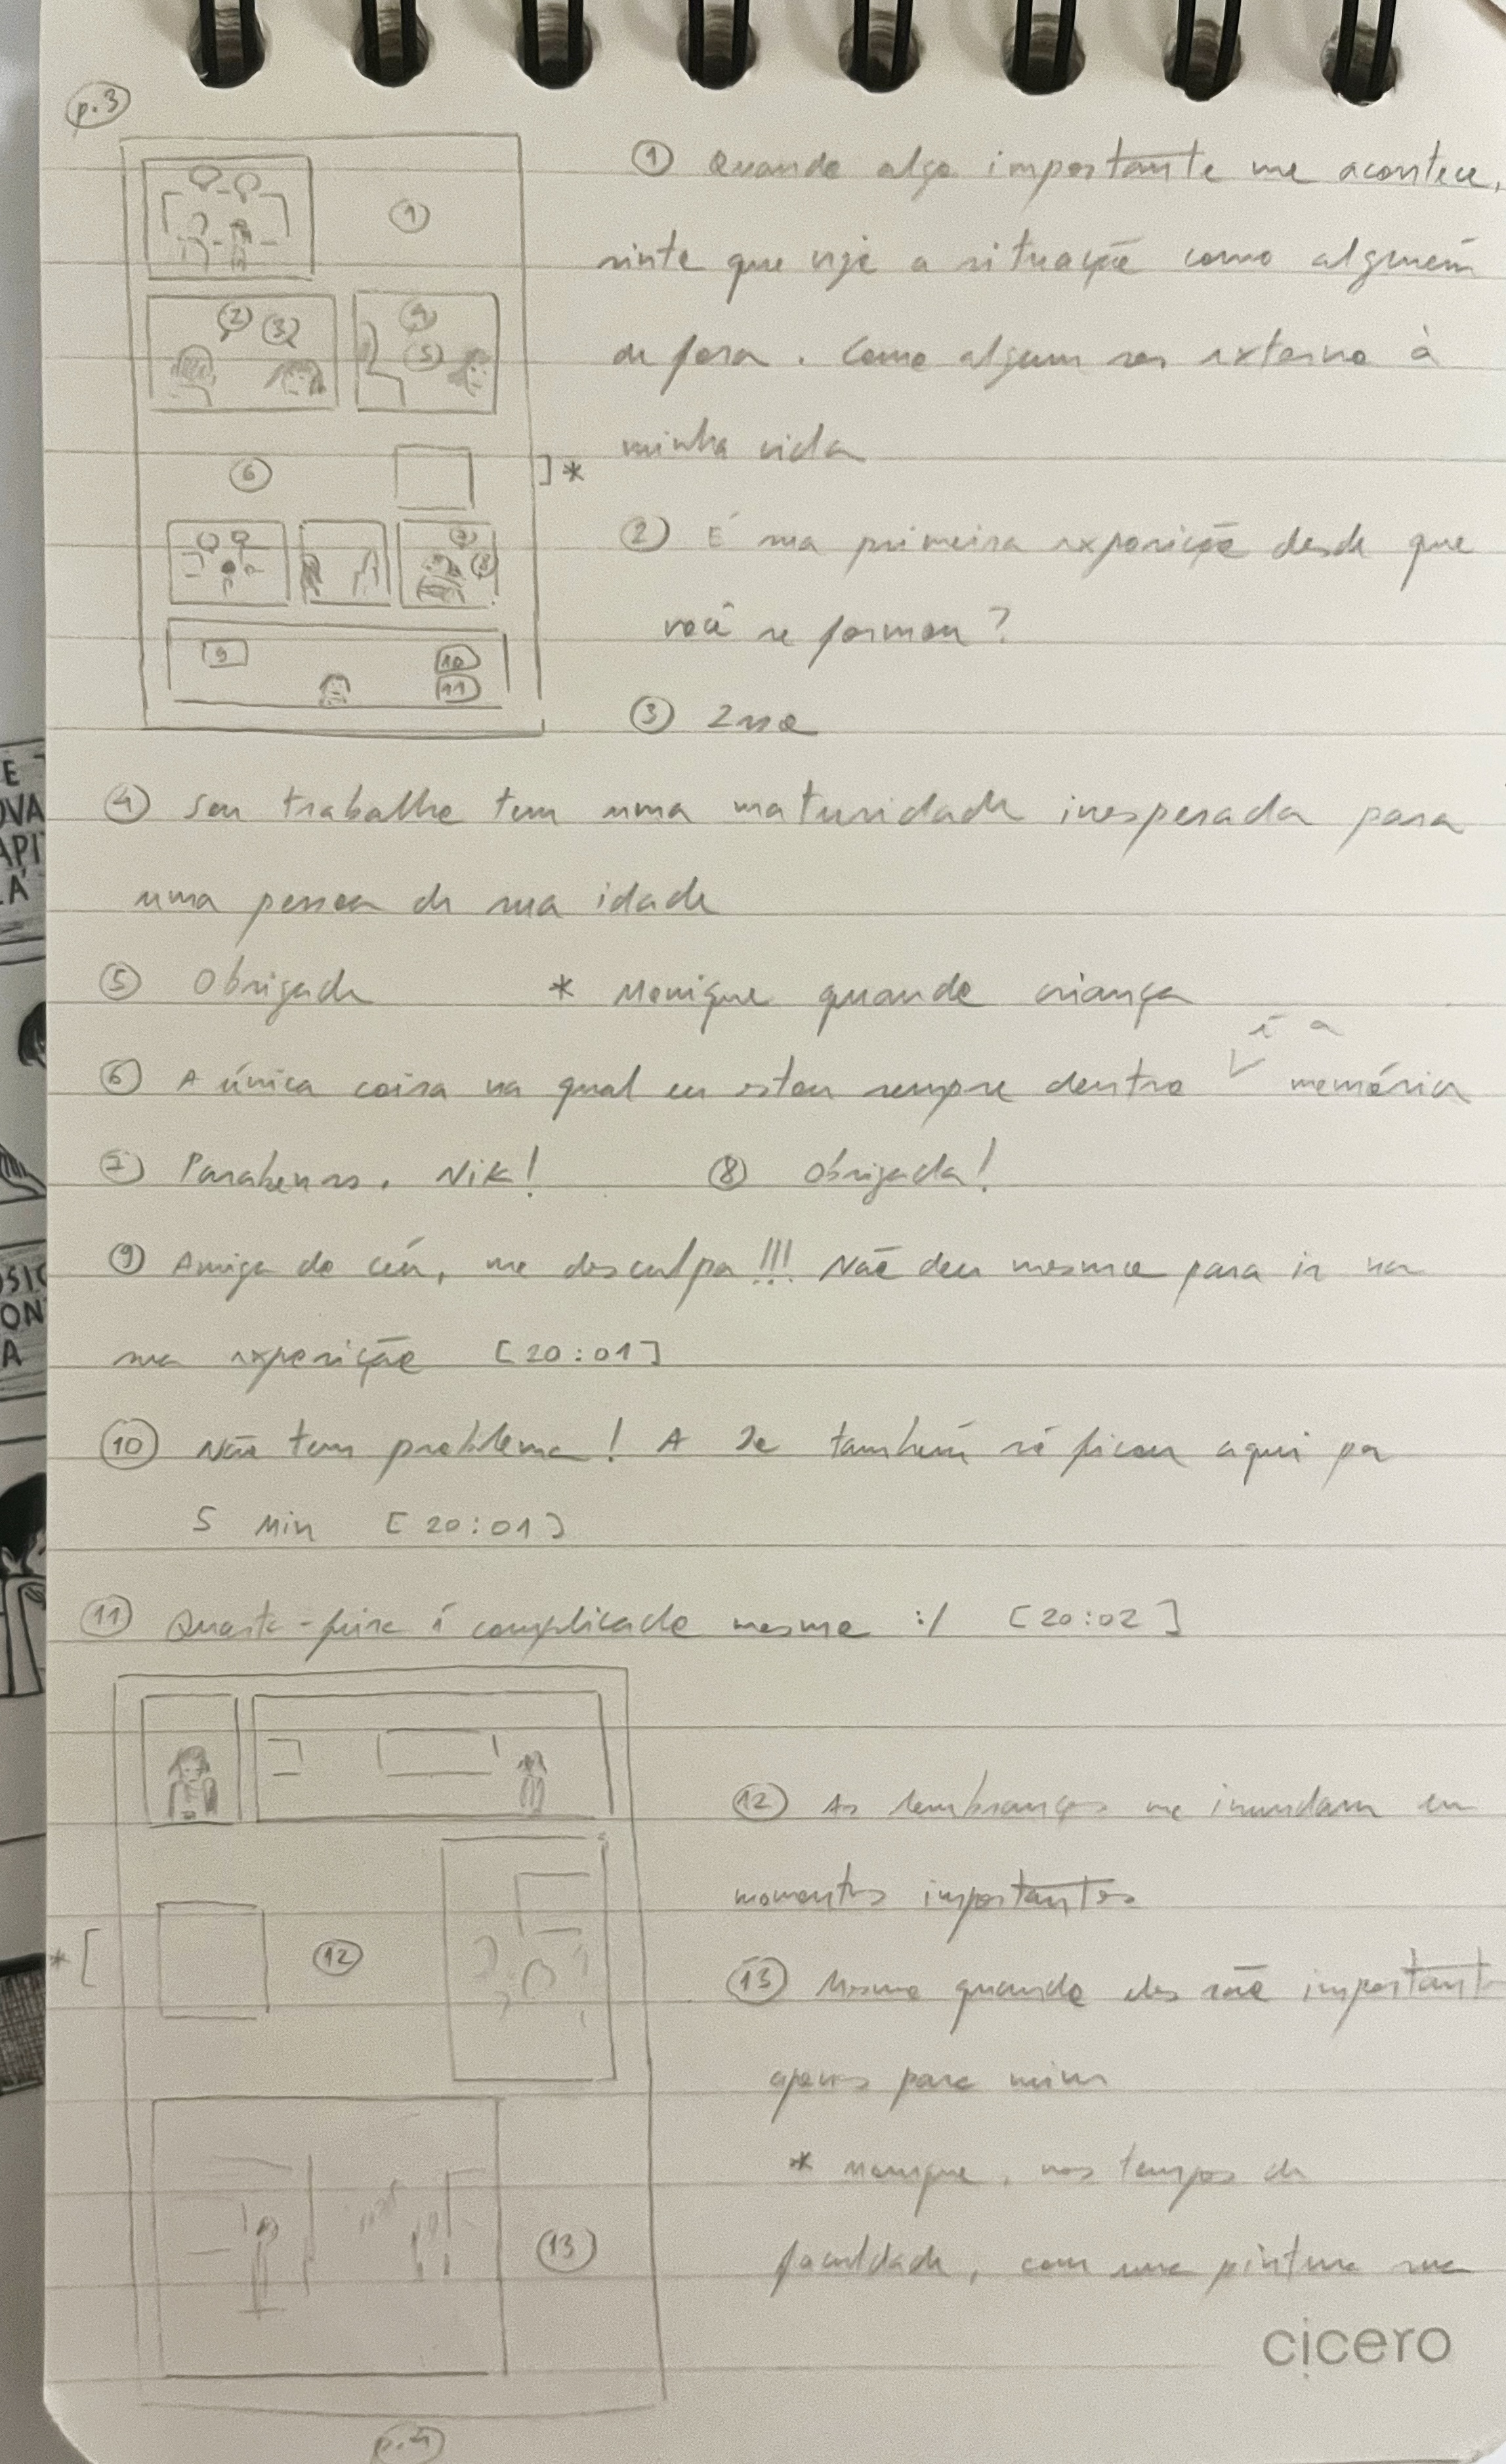 p.3
① Quando algo importante me acontece,
sinto que vejo a situação como alguém
de fora. Como algum ser externo à
minha vida
② É sua primeira exposição desde que
você se formou?
③ Isso
④ Seu trabalho tem uma maturidade inesperada para
uma pessoa de sua idade
⑤ Obrigada * Monique quando criança
é a
⑥ A única coisa na qual eu estou sempre dentro memória
⑦ Parabéns, Nik! ⑧ Obrigada!
⑨ Amiga do céu, me desculpa!!! Não deu mesmo para ir na
sua exposição [20:01]
⑩ Não tem problema! A Je também só ficou aqui por
5 min [20:01]
⑪ Quarta-feira é complicado mesmo :/ [20:02]
⑫ As lembranças me inundam em
momentos importantes
⑬ Mesmo quando eles são importantes
apenas para mim
* Monique, nos tempos da
faculdade, com uma pintura sua
cicero
p.4
①
② ③
④
⑤
⑥ ]*
⑦
⑧
9 10
11
*[ ⑫
⑬
E
OVA
API
LÁ
OSIÇ
ON
A